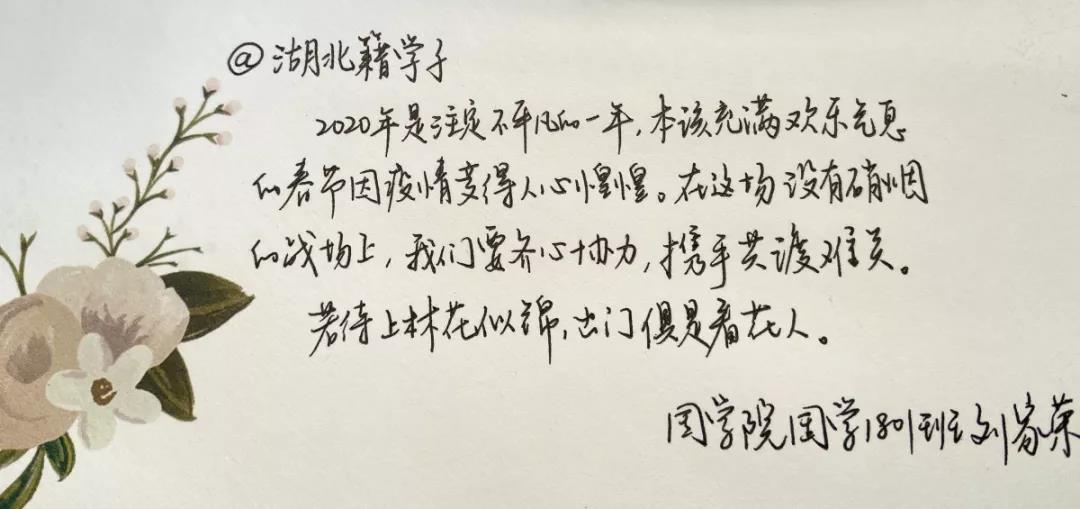 @湖北籍学子
2020年是注定不平凡的一年,本该充满欢乐气息
的春节因疫情变得人心惶惶。在这场没有硝烟
的战场上,我们要齐心协力,携手共渡难关。
若待上林花似锦,出门俱是看花人。
国学院国学1801班刘家荣